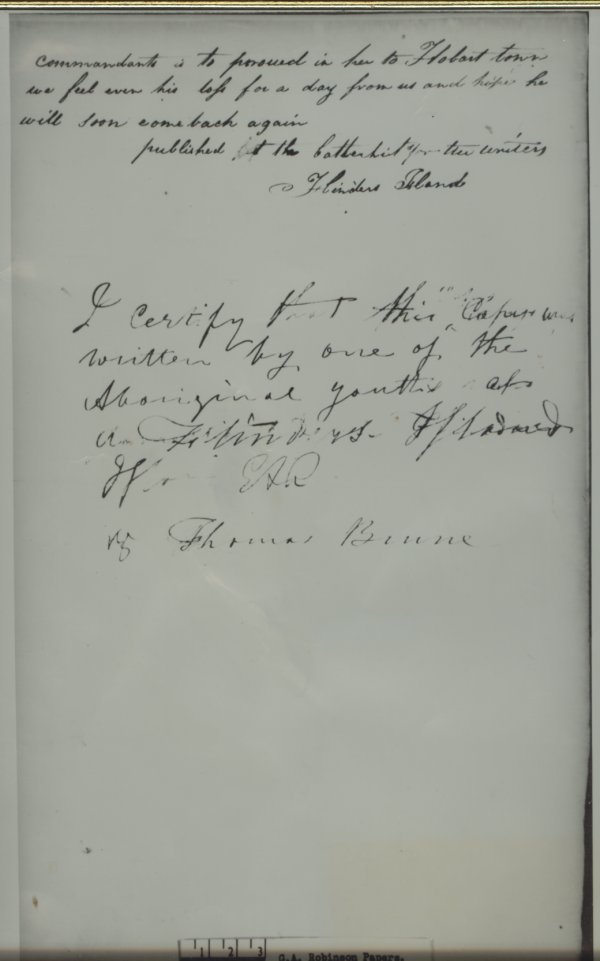 commandants is to poroued in her to Hobart town
we feel even his loss for a day from us and hope he
will soon come back again
published at the
Flinders Island
I certify that this Copy was
written by one of the
Aboriginal youths at
Flinders Island
GAR
Thomas Brune
1 2 3
G.A. Robinson Papers.